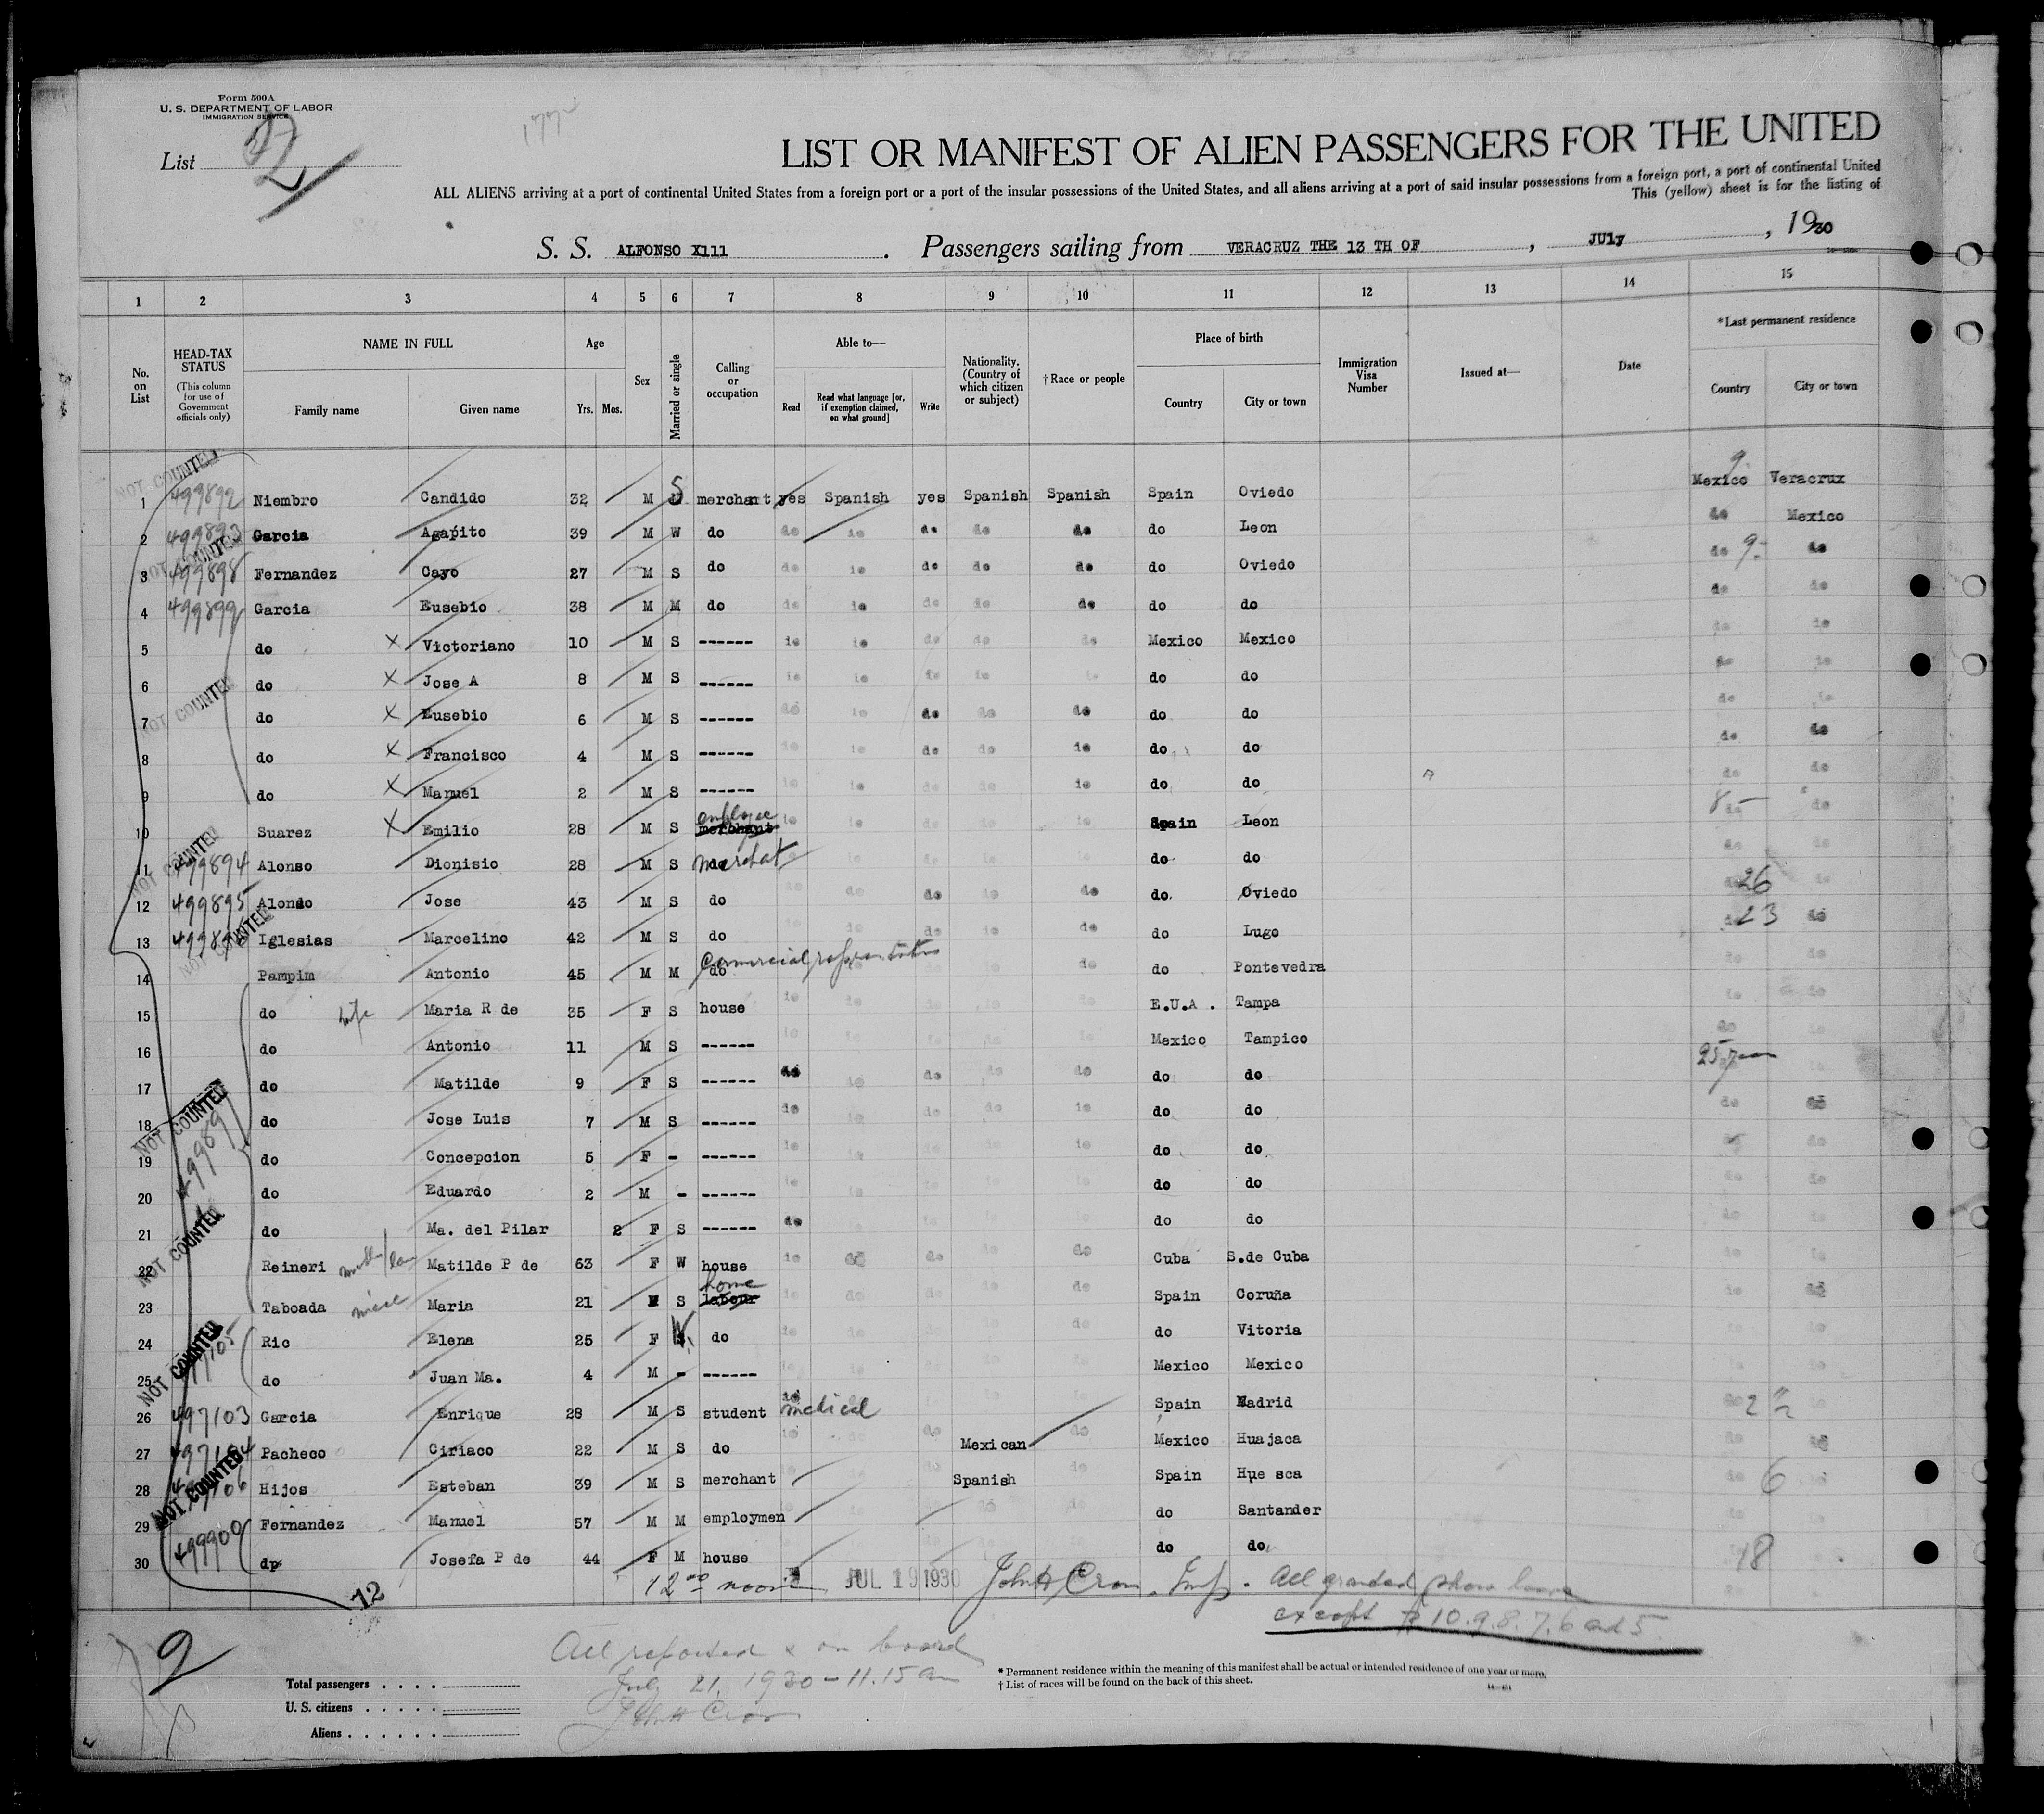 Form 500A
U. S. DEPARTMENT OF LABOR
IMMIGRATION SERVICE
List 2
LIST OR MANIFEST OF ALIEN PASSENGERS FOR THE UNITED
ALL ALIENS arriving at a port of continental United States from a foreign port or a port of the insular possessions of the United States, and all aliens arriving at a port of said insular possessions from a foreign port, a port of continental United
This (yellow) sheet is for the listing of
S. S. ALFONSO X111 . Passengers sailing from VERACRUZ THE 13 TH OF , JUly , 1930
1 2 3 4 5 6 7 8 9 10 11 12 13 14 15
No. on List
HEAD-TAX STATUS (This column for use of Government officials only)
NAME IN FULL Family name Given name
Age Yrs. Mos.
Sex
Married or single
Calling or occupation
Able to— Read Read what language [or, if exemption claimed, on what ground] Write
Nationality. (Country of which citizen or subject)
†Race or people
Place of birth Country City or town
Immigration Visa Number
Issued at—
Date
*Last permanent residence Country City or town
1 499892 Niembro Candido 32 M S merchant yes Spanish yes Spanish Spanish Spain Oviedo Mexico Veracrux
2 499893 Garcia Agapito 39 M W do do do do do do do Leon do Mexico
3 499898 Fernandez Cayo 27 M S do do do do do do do Oviedo do 9 do
4 499899 Garcia Eusebio 38 M M do do do do do do do do do do
5 do X Victoriano 10 M S ------ do do do do do Mexico Mexico do do
6 do X Jose A 8 M S ------ do do do do do do do do do
7 do X Eusebio 6 M S ------ do do do do do do do do do
8 do X Francisco 4 M S ------ do do do do do do do do do
9 do X Manuel 2 M S ------ do do do do do do do do do
10 Suarez X Emilio 28 M S employee merchant do do do do do Spain Leon do do
11 499894 Alonso Dionisio 28 M S do merchat do do do do do do do do do
12 499895 Alondo Jose 43 M S do do do do do do do Oviedo 26 do
13 Iglesias Marcelino 42 M S do do do do do do do Lugo do 23 do
14 Pampim Antonio 45 M M do do do Pontevedra do do
15 do wife Maria R de 35 F S house do do do do do E.U.A . Tampa do do
16 do Antonio 11 M S ------ do do do do do Mexico Tampico do do
17 do Matilde 9 F S ------ do do do do do do do 25 do
18 do Jose Luis 7 M S ------ do do do do do do do do do
19 do Concepcion 5 F - ------ do do do do do do do do do
20 do Eduardo 2 M - ------ do do do do do do do do do
21 do Ma. del Pilar 2 F S ------ do do do do do do do do do
22 Reineri Matilde P de 63 F W house do do do do do Cuba S.de Cuba do do
23 Taboada niece Maria 21 S home labour do do do do do Spain Coruña do do
24 Ric Elena 25 F W do do do do do do do Vitoria do do
25 do Juan Ma. 4 M - ------ do do do do do Mexico Mexico do do
26 497103 Garcia Enrique 28 M S student medical do Spain Madrid do do
27 497104 Pacheco Ciriaco 22 M S do do do Mexican do Mexico Huajaca do do
28 Hijos Esteban 39 M S merchant do Spanish do Spain Hue sca do 6 do
29 Fernandez Manuel 57 M M employmen do do do Santander
30 499900 do Josefa P de 44 F M house do do 18
NOT COUNTED
NOT COUNTED
NOT COUNTED
NOT COUNTED
NOT COUNTED
NOT COUNTED
NOT COUNTED
NOT COUNTED
NOT COUNTED
12
12 00 noon JUL 19 1930 John H Cron . Insp . All granted shore leave
except # 10.9.8.7.6 and 5
2
All reported & on board
July 21, 1930 - 11.15 am
John H Cron
Total passengers . . . .
U. S. citizens . . . . .
Aliens . . . . . .
* Permanent residence within the meaning of this manifest shall be actual or intended residence of one year or more.
† List of races will be found on the back of this sheet.